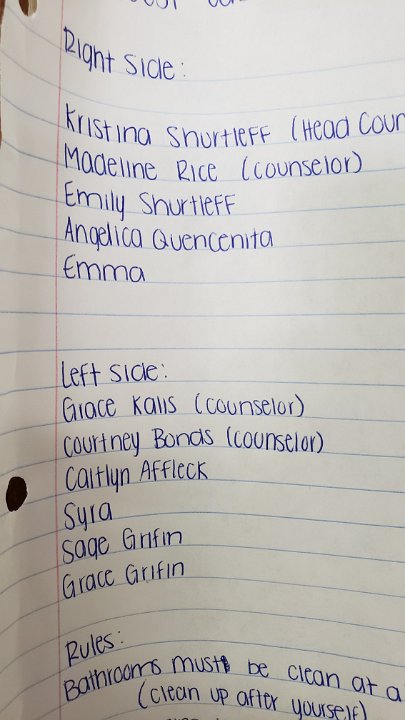 Right side:
Kristina Shurtleff (Head Coun
Madeline Rice (counselor)
Emily Shurtleff
Angelica Quencenita
Emma
Left side:
Grace Kalis (counselor)
Courtney Bonds (counselor)
Caitlyn Affleck
Syra
Sage Grifin
Grace Grifin
Rules:
Bathrooms must be clean at a
(clean up after yourself)